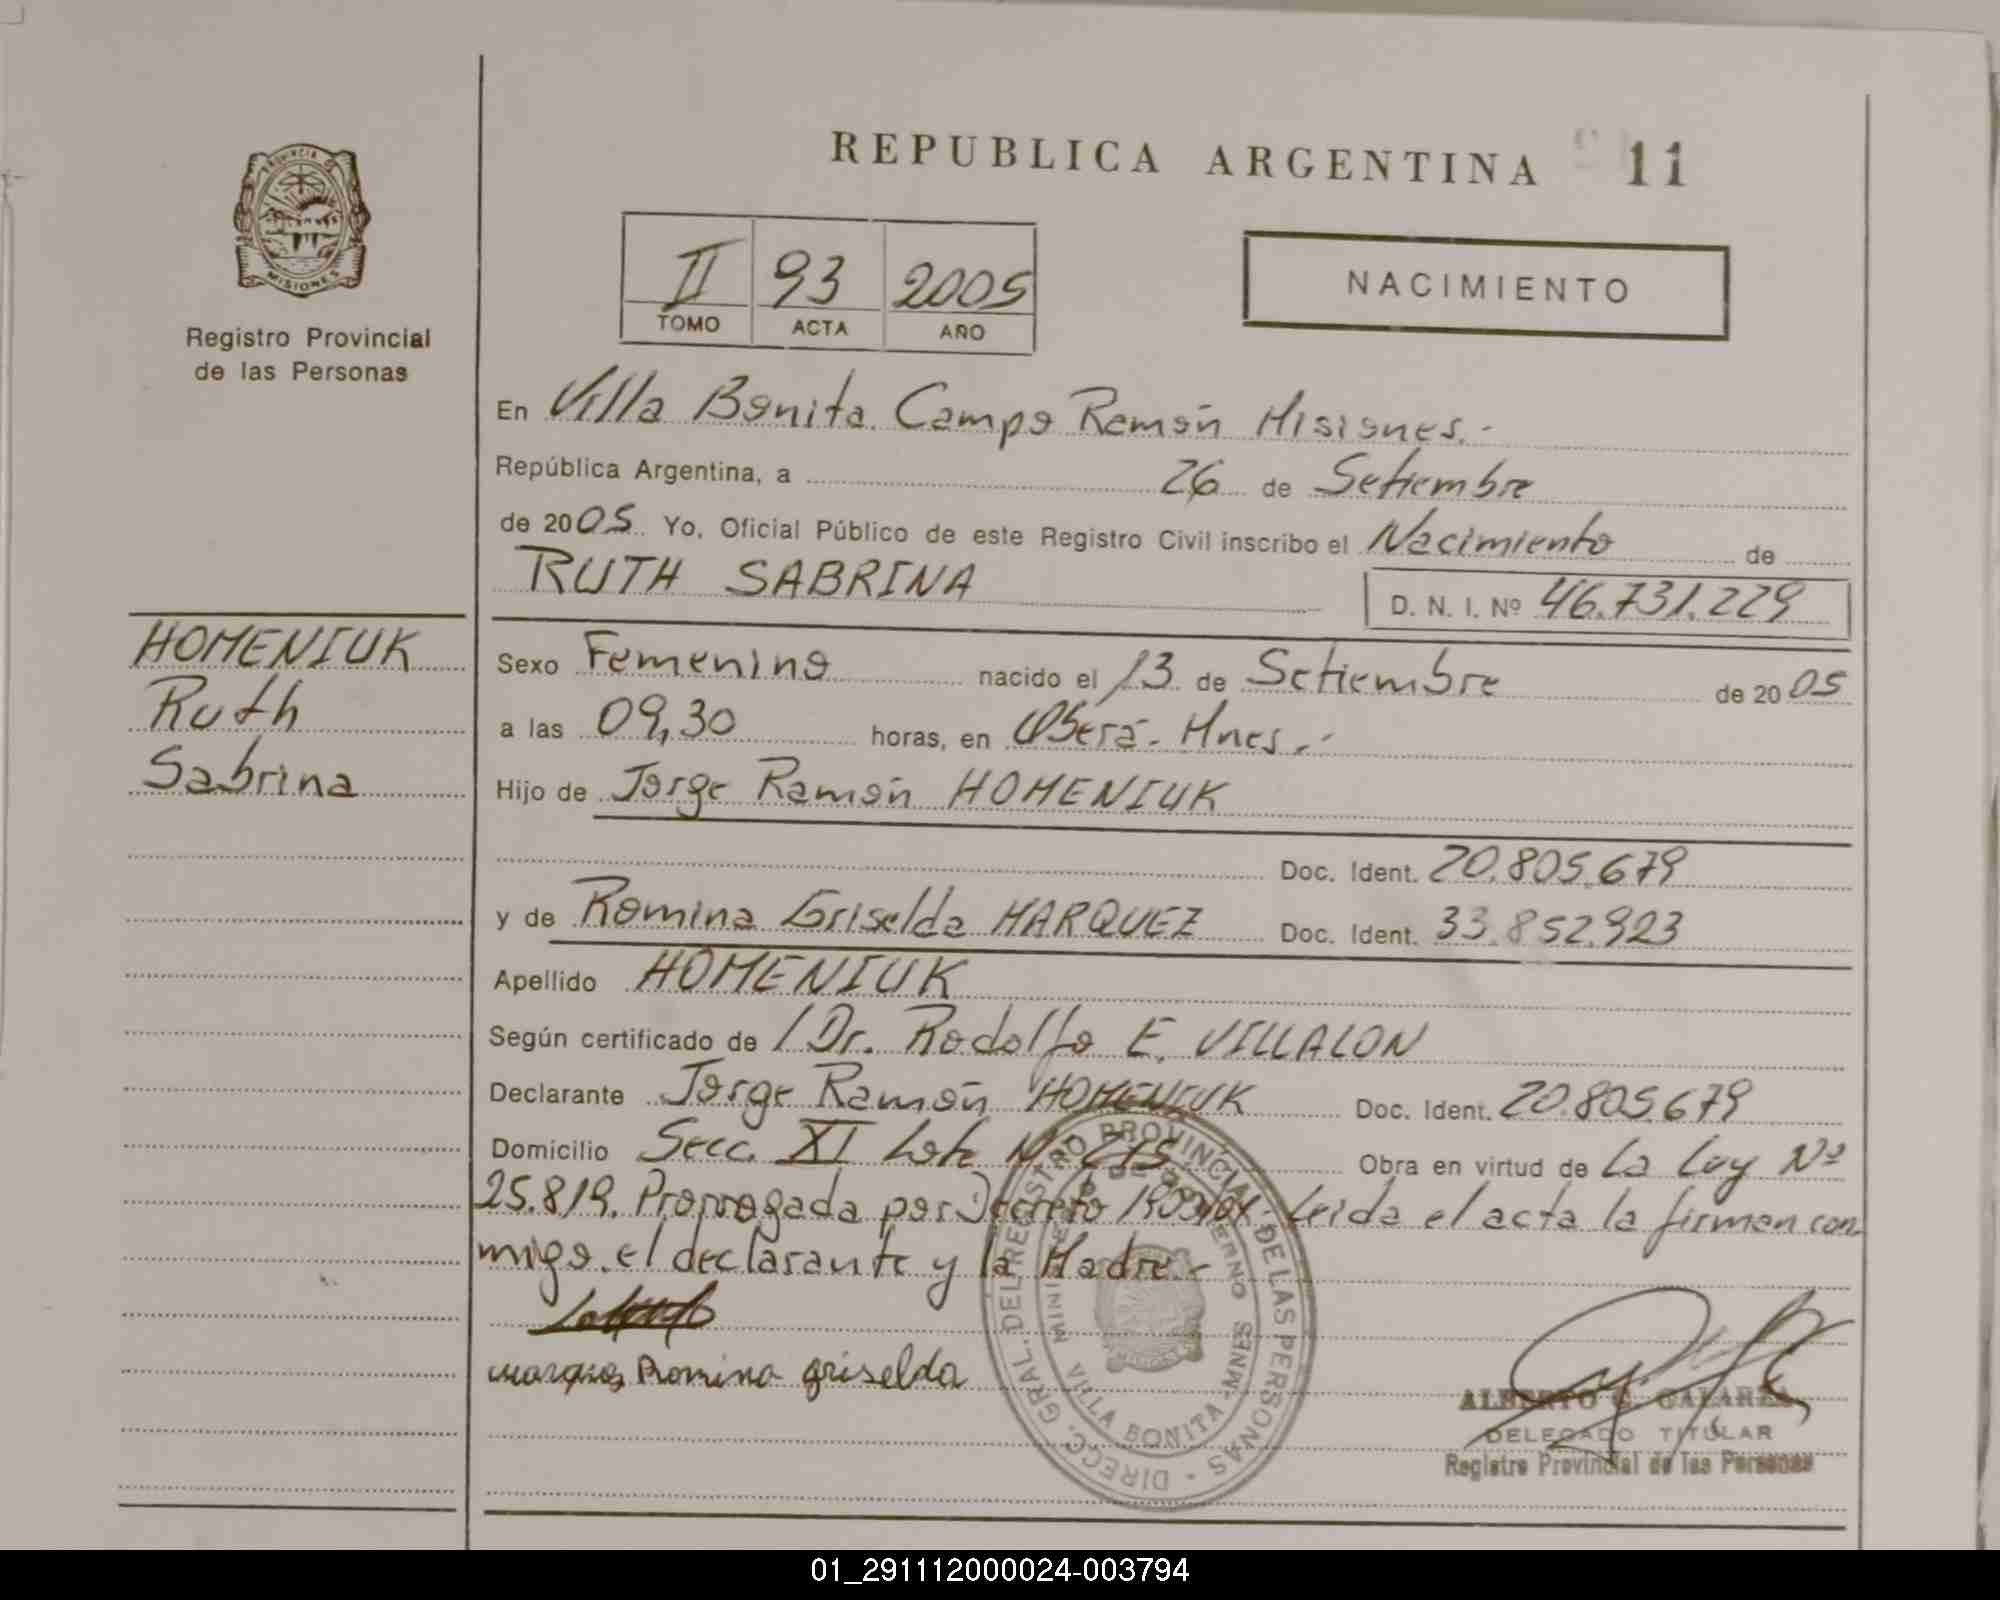 REPUBLICA ARGENTINA 11
PROVINCIA DE
MISIONES
Registro Provincial
de las Personas
II 93 2005
TOMO ACTA AÑO
NACIMIENTO
En Villa Bonita. Campo Ramón Misiones.-
República Argentina, a 26 de Setiembre
de 2005. Yo, Oficial Público de este Registro Civil inscribo el Nacimiento de
RUTH SABRINA D. N. I. Nº 46.731.229
HOMENIUK
Ruth
Sabrina
Sexo Femenino nacido el 13 de Setiembre de 2005
a las 09,30 horas, en Oberá- Mnes.-
Hijo de Jorge Ramón HOMENIUK
Doc. Ident. 20.805.679
y de Romina Griselda MARQUEZ Doc. Ident. 33.852.923
Apellido HOMENIUK
Según certificado de / Dr. Rodolfo E. VILLALON
Declarante Jorge Ramón HOMENIUK Doc. Ident. 20.805.679
Domicilio Secc. XI Lote Obra en virtud de La Ley Nº
25.819. Prorrogada por Decreto Leida el acta la firman con
migo. el declarante y la Madre.-
Marquez Romina griselda
DIRECC. GRAL. DEL REGISTRO PROVINCIAL DE LAS PERSONAS
MINISTERIO DE GOBIERNO
VILLA BONITA - MNES
ALBERTO G. GALARZA
DELEGADO TITULAR
Registro Provincial de las Personas
01_291112000024-003794